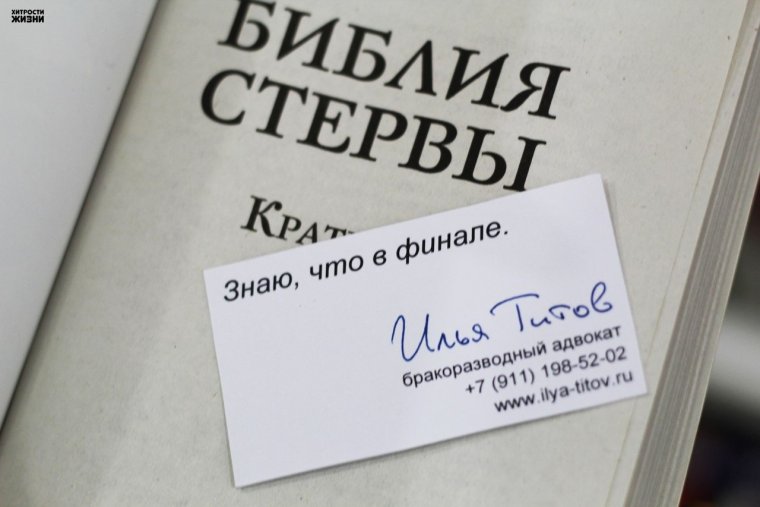 ХИТРОСТИ
ЖИЗНИ
БИБЛИЯ
СТЕРВЫ
Знаю, что в финале.
Илья Титов
бракоразводный адвокат
+7 (911) 198-52-02
www.ilya-titov.ru